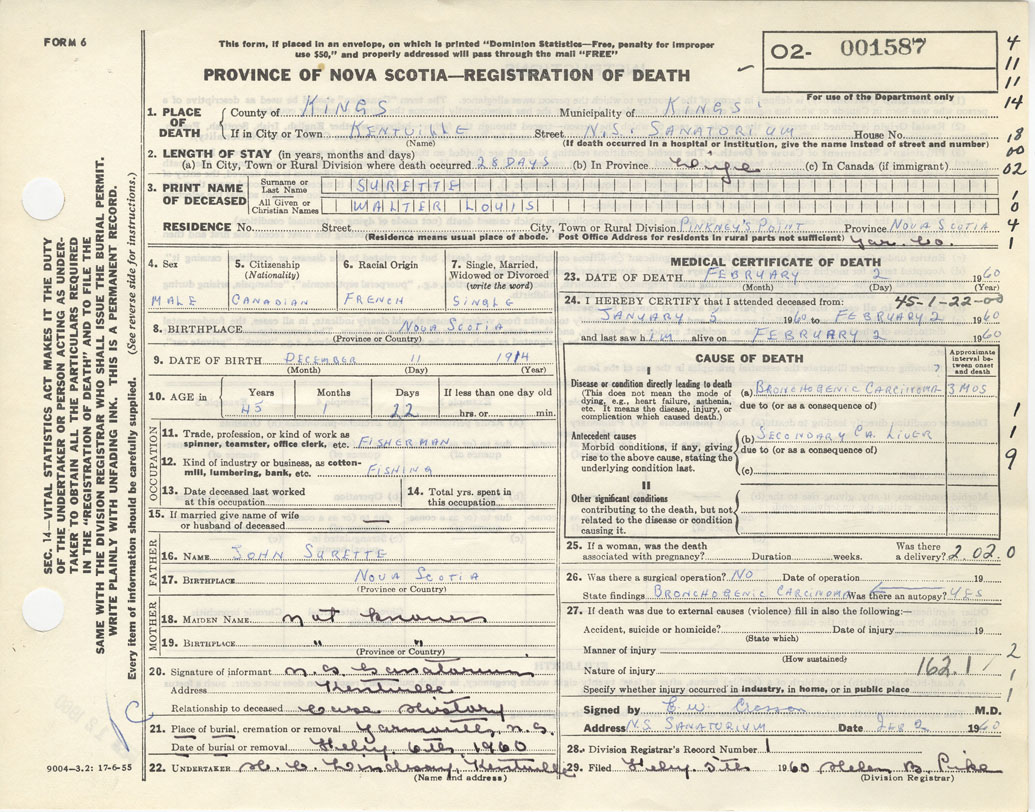 FORM 6
This form, if placed in an envelope, on which is printed "Dominion Statistics—Free, penalty for improper
use $50," and properly addressed will pass through the mail "FREE"
PROVINCE OF NOVA SCOTIA—REGISTRATION OF DEATH
02- 001587
For use of the Department only
4
11
11
14
18
00
02
1
0
4
1
1. PLACE OF DEATH County of KINGS Municipality of KINGS
If in City or Town KENTVILLE Street N.S. SANATORIUM House No.
(Name) (If death occurred in a hospital or institution, give the name instead of street and number)
2. LENGTH OF STAY (in years, months and days)
(a) In City, Town or Rural Division where death occurred 28 DAYS (b) In Province Life (c) In Canada (if immigrant)
3. PRINT NAME OF DECEASED Surname or Last Name SURETTE
All Given or Christian Names WALTER LOUIS
RESIDENCE No. Street City, Town or Rural Division PINKNEY'S POINT Province NOVA SCOTIA
(Residence means usual place of abode. Post Office Address for residents in rural parts not sufficient) Yar. Co.
4. Sex MALE
5. Citizenship (Nationality) CANADIAN
6. Racial Origin FRENCH
7. Single, Married, Widowed or Divorced (write the word) SINGLE
8. BIRTHPLACE NOVA SCOTIA
(Province or Country)
9. DATE OF BIRTH DECEMBER 11 1914
(Month) (Day) (Year)
10. AGE in Years Months Days If less than one day
45 1 22 hrs. or min.
OCCUPATION
11. Trade, profession, or kind of work as
spinner, teamster, office clerk, etc. FISHERMAN
12. Kind of industry or business, as cotton-
mill, lumbering, bank, etc. FISHING
13. Date deceased last worked at this occupation
14. Total yrs. spent in this occupation
15. If married give name of wife
or husband of deceased —
FATHER
16. NAME JOHN SURETTE
17. BIRTHPLACE NOVA SCOTIA
(Province or Country)
MOTHER
18. MAIDEN NAME not known
19. BIRTHPLACE " "
(Province or Country)
20. Signature of informant N.S. Sanatorium
Address Kentville
Relationship to deceased Case History
21. Place of burial, cremation or removal Yarmouth, N.S.
Date of burial or removal Feby. 6th 1960
22. UNDERTAKER H. C. Lindsay, Kentville
(Name and address)
MEDICAL CERTIFICATE OF DEATH
23. DATE OF DEATH FEBRUARY 2 1960
(Month) (Day) (Year)
24. I HEREBY CERTIFY that I attended deceased from: 45-1-22-00
JANUARY 5 1960 to FEBRUARY 2 1960
and last saw him alive on FEBRUARY 2 1960
CAUSE OF DEATH
Approximate interval between onset and death
I
Disease or condition directly leading to death
(This does not mean the mode of dying, e.g., heart failure, asthenia, etc. It means the disease, injury, or complication which caused death.)
(a) BRONCHOGENIC CARCINOMA 3 MOS
due to (or as a consequence of)
Antecedent causes
Morbid conditions, if any, giving rise to the above cause, stating the underlying condition last.
(b) SECONDARY CA. LIVER
due to (or as a consequence of)
(c)
II
Other significant conditions
contributing to the death, but not related to the disease or condition causing it.
1
1
9
25. If a woman, was the death Was there
associated with pregnancy? Duration weeks. a delivery? 2 02 0
26. Was there a surgical operation? NO Date of operation 19
State findings BRONCHOGENIC CARCINOMA Was there an autopsy? YES
27. If death was due to external causes (violence) fill in also the following:—
Accident, suicide or homicide? Date of injury 19
(State which)
Manner of injury 2
(How sustained)
Nature of injury 162.1 1
Specify whether injury occurred in industry, in home, or in public place 1
Signed by M.D.
Address N.S. SANATORIUM Date FEB 2 1960
28. Division Registrar's Record Number 1
29. Filed Feby. 5th 1960 Helen B. Pike
(Division Registrar)
SEC. 14—VITAL STATISTICS ACT MAKES IT THE DUTY
OF THE UNDERTAKER OR PERSON ACTING AS UNDER-
TAKER TO OBTAIN ALL THE PARTICULARS REQUIRED
IN THE "REGISTRATION OF DEATH" AND TO FILE THE
SAME WITH THE DIVISION REGISTRAR WHO SHALL ISSUE THE BURIAL PERMIT.
WRITE PLAINLY WITH UNFADING INK. THIS IS A PERMANENT RECORD.
Every item of information should be carefully supplied. (See reverse side for instructions.)
9004-3.2: 17-6-55